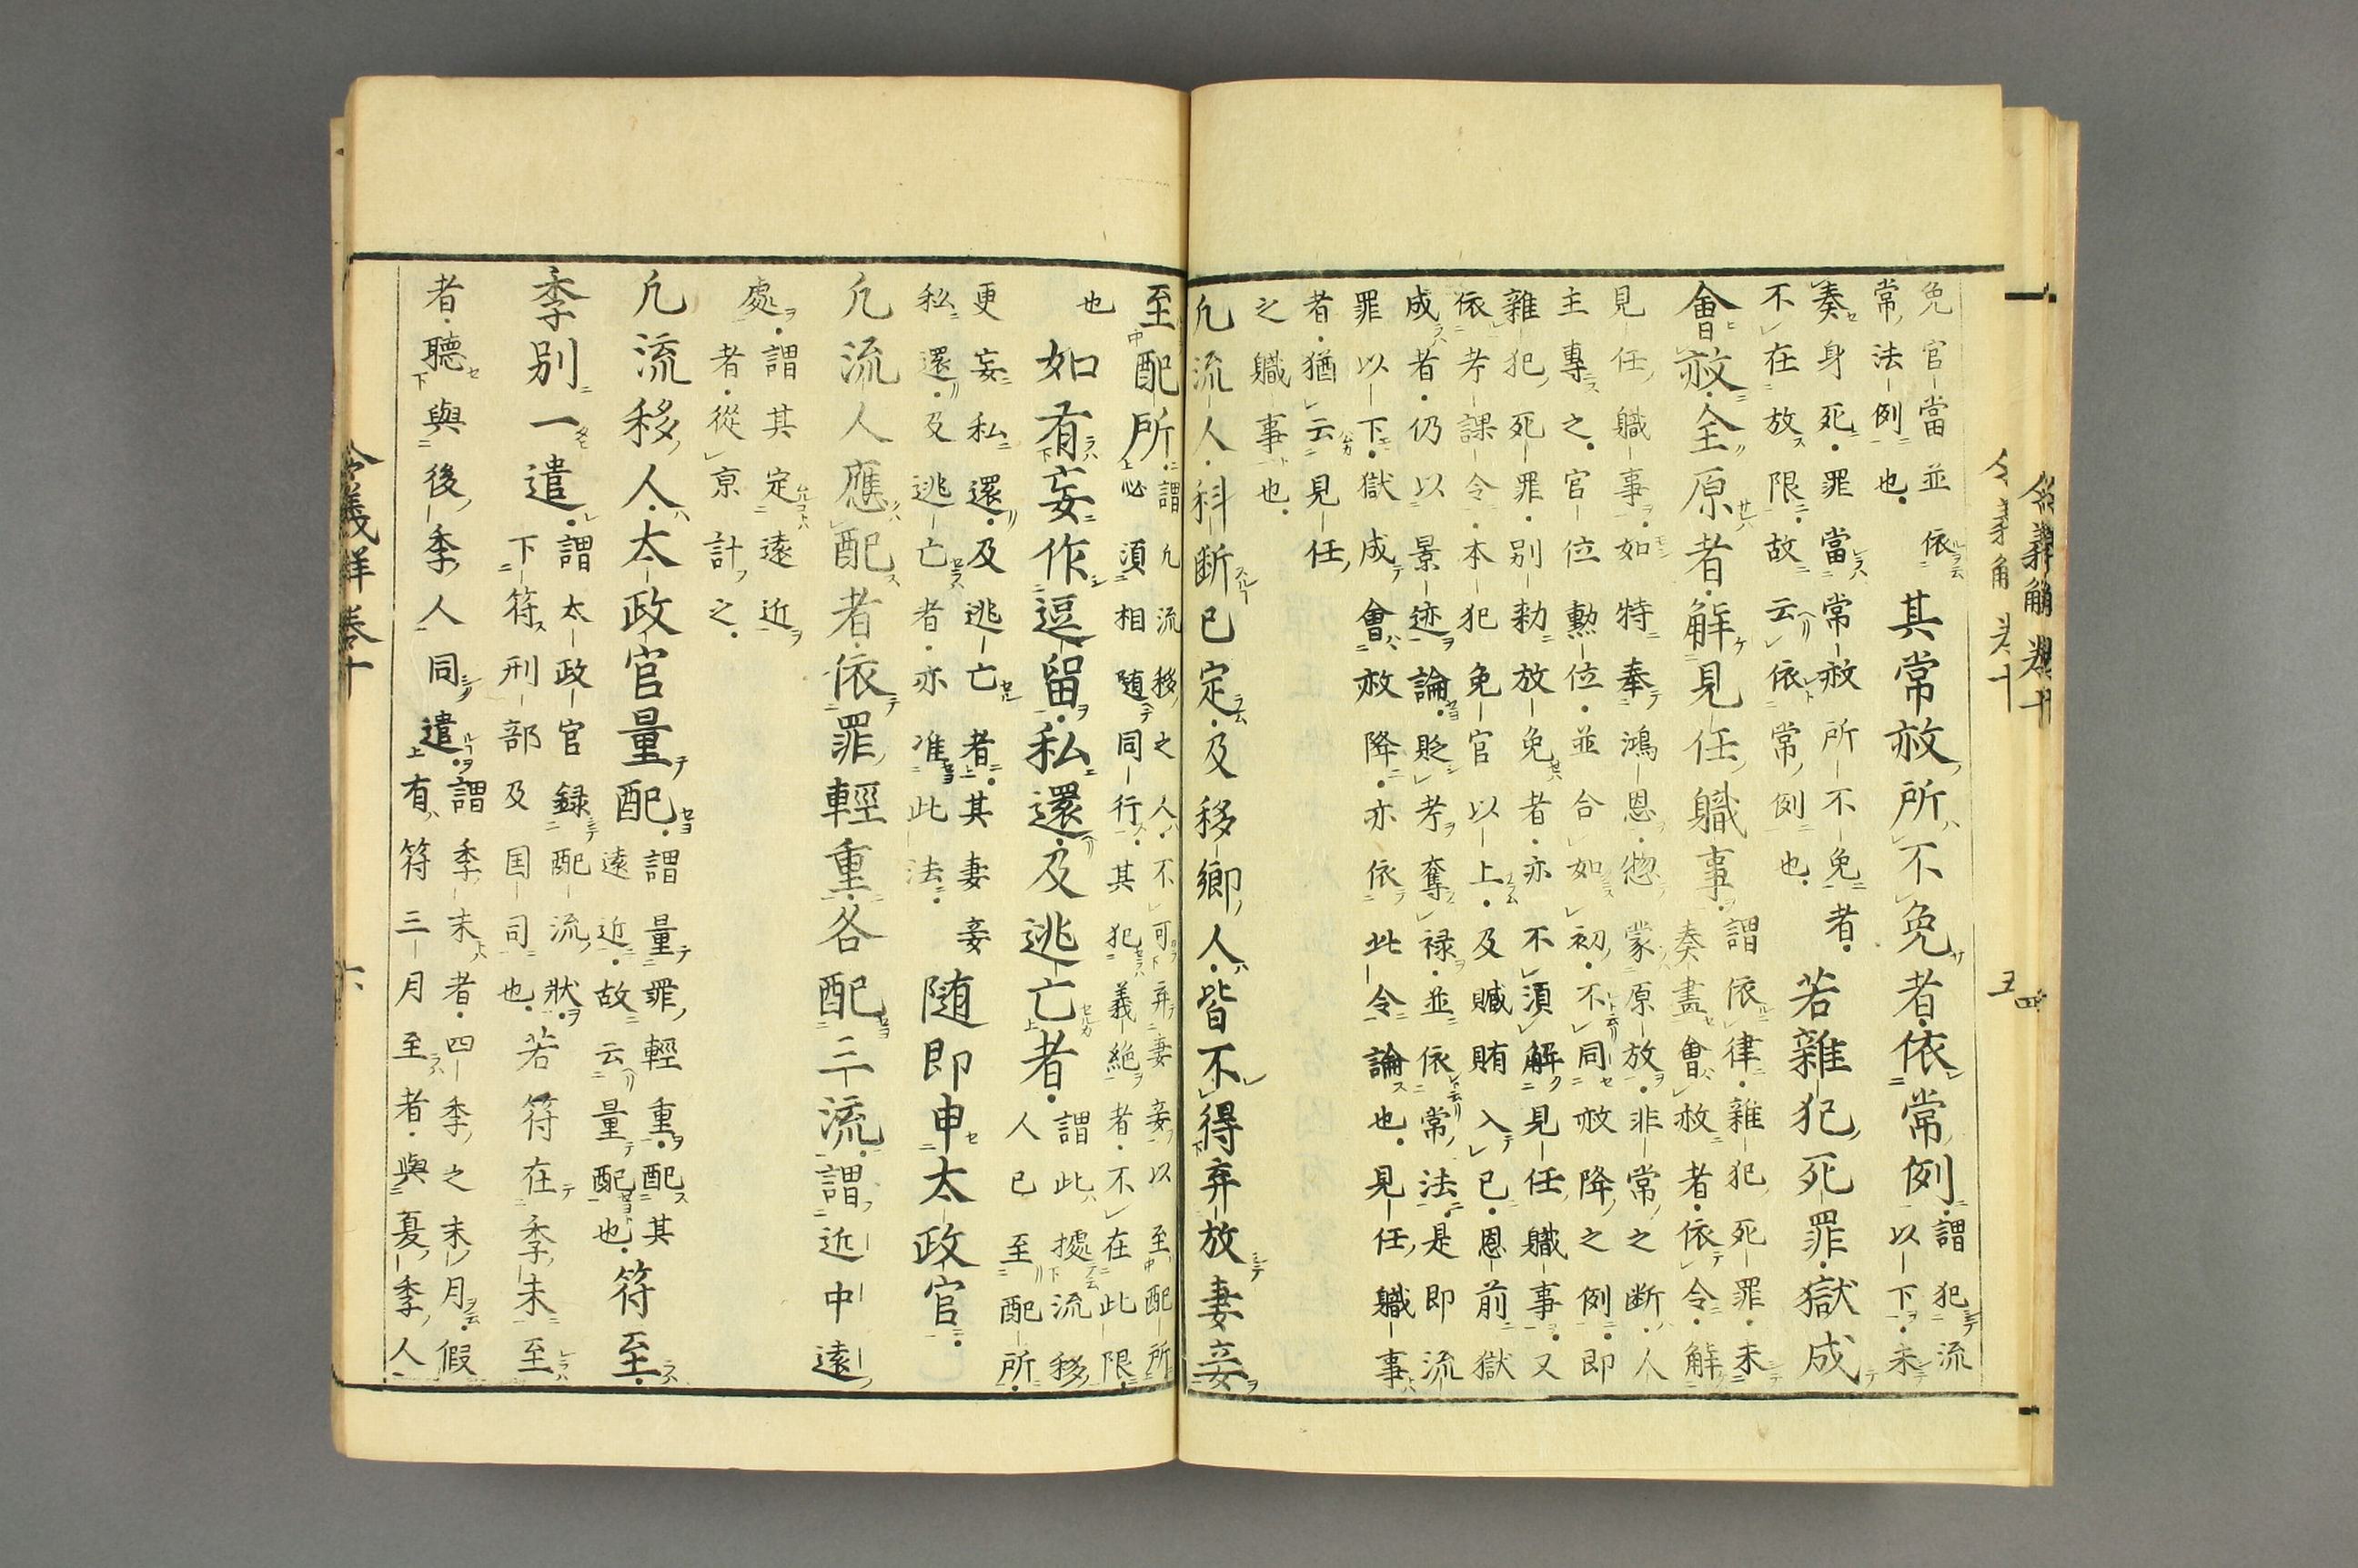 令義解巻十
免官當並依
常法例也
其常赦所不免者依常例
謂犯流
以下未
奏身死罪當常赦所不免者
不在放限故云依常例也
若雜犯死罪獄成
會赦全原者解見任職事
謂依律雜犯死罪未
奏盡會赦者依令解
見任職事如特奉鴻恩惣蒙原放非常之断人
主專之官位勳位並合如初不同赦降之例即
雜犯死罪別勅放免者亦不須解見任職事又
依考課令本犯免官以上及贓賄入已恩前獄
成者仍以景迹論貶考奪禄並依常法是即流
罪以下獄成會赦降亦依此令論也見任職事
者猶云見任
之職事也
凢流人科断已定及移郷人皆不得弃放妻妾
至配所
謂凢流移之人不可弃妻妾以至配所
必須相随同行其犯義絶者不在此限
也
如有妄作逗留私還及逃亡者
謂此據流移
人已至配所
更妄私還及逃亡者其妻妾
私還及逃亡者亦准此法
随即申太政官
凢流人應配者依罪輕重各配三流謂近中遠
處
謂其定遠近
者從京計之
凢流移人太政官量配
謂量罪輕重配其
遠近故云量配也
符至
季別一遣
謂太政官録配流狀
下符刑部及国司也
若符在季末至
者聽與後季人同遣
謂季末者四季之末月假
有符三月至者與夏季人
令義解巻十
六